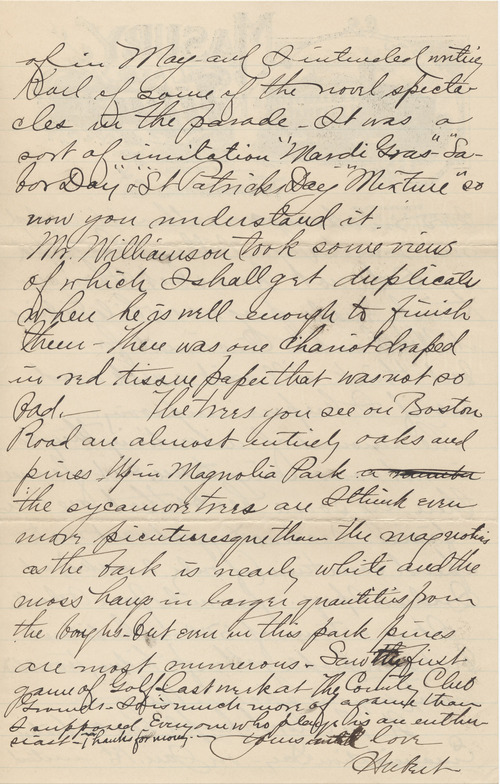 of in May and I intended writing
Karl of some of the novel specta-
cles in the parade - It was a
sort of imitation "Mardi Gras" "La-
bor Day" & "St Patricks Day" "Mixture" so
now you understand it.
Mr. Williamson took some views
of which I shall get duplicate
when he is well enough to finish
them - There was one Chariot draped
in red tissue paper that was not so
bad. - The trees you see on Boston
Road are almost entirely oaks and
pines - Up in Magnolia Park a number
the sycamore trees are I think even
more picturesque than the magnolias
as the bark is nearly white and the
moss hang in larger quantities from
the boughs - But even in this park pines
are most numerous - Saw the first
game of Golf last week at the Country Club
Grounds - It is much more of a game than
I supposed. Everyone who plays is an enthu-
siast - Thanks for money - Yours with love